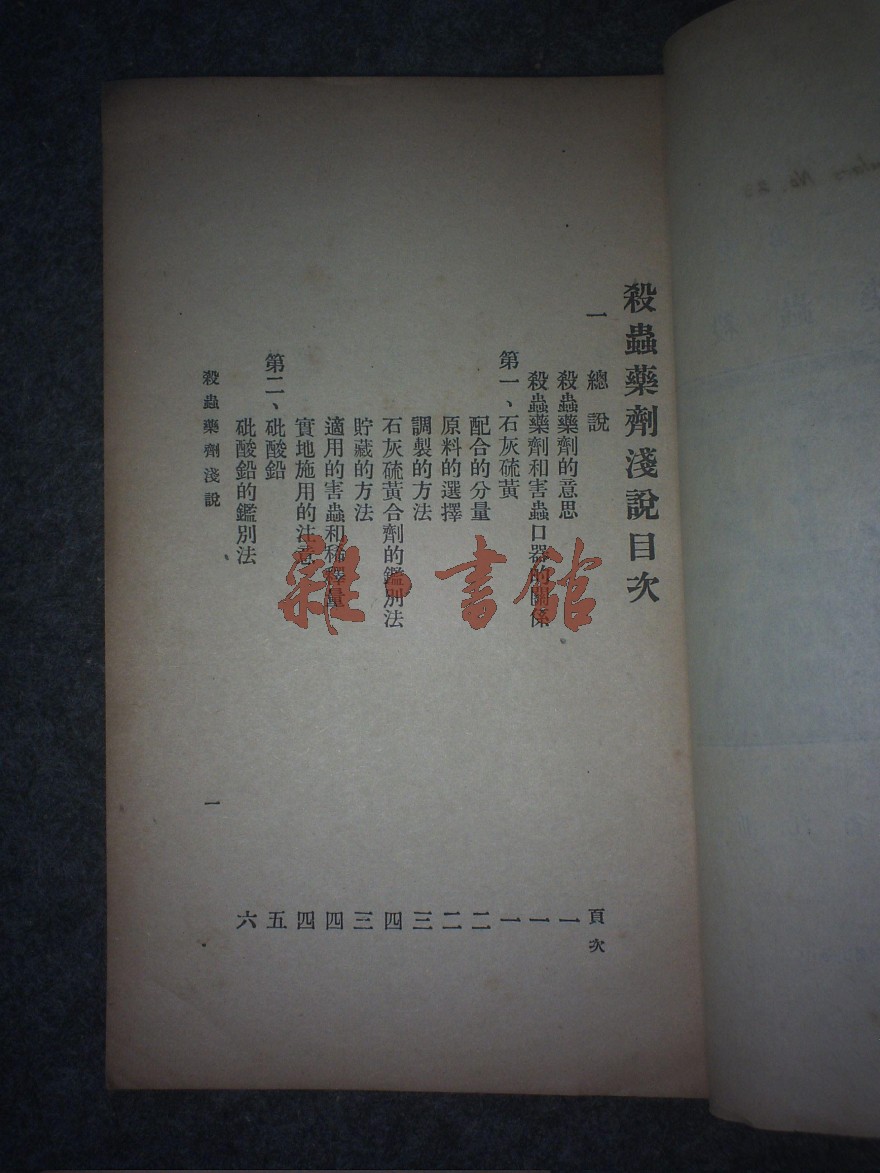 殺蟲藥劑淺說目次
一 總說 頁次
殺蟲藥劑的意思 一
殺蟲藥劑和害蟲口器的關係 一
第一、石灰硫黃 一
配合的分量 二
原料的選擇 二
調製的方法 三
石灰硫黃合劑的鑑別法 四
貯藏的方法 三
適用的害蟲和稀釋量 四
實地施用的注意 四
第二、砒酸鉛 五
砒酸鉛的鑑別法 六
殺蟲藥劑淺說 一
雜·書館